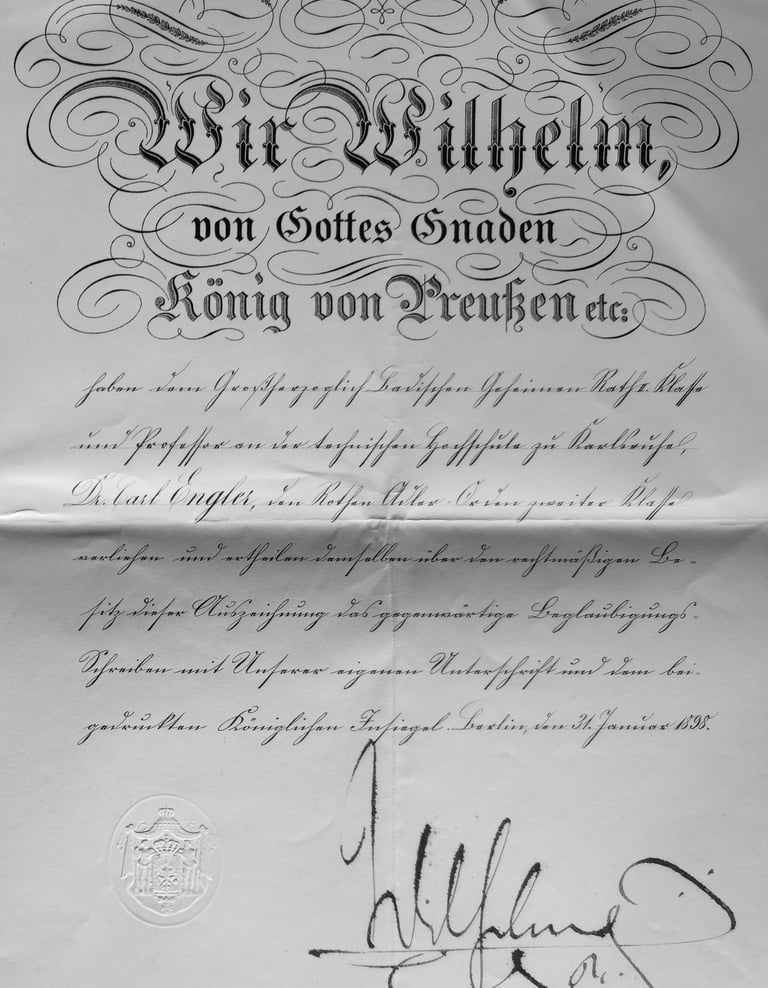 Wir Wilhelm,
von Gottes Gnaden
König von Preußen etc:
haben dem Großherzoglich Badischen Geheimen Rath II. Klasse
und Professor an der technischen Hochschule zu Karlsruhe,
Dr. Carl Engler, den Rothen Adler-Orden zweiter Klasse
verliehen und ertheilen demselben über den rechtmäßigen Be-
sitz dieser Auszeichnung das gegenwärtige Beglaubigungs-
Schreiben mit Unserer eigenen Unterschrift und dem bei-
gedruckten Königlichen Insiegel. Berlin, den 31. Januar 1898.
Wilhelm